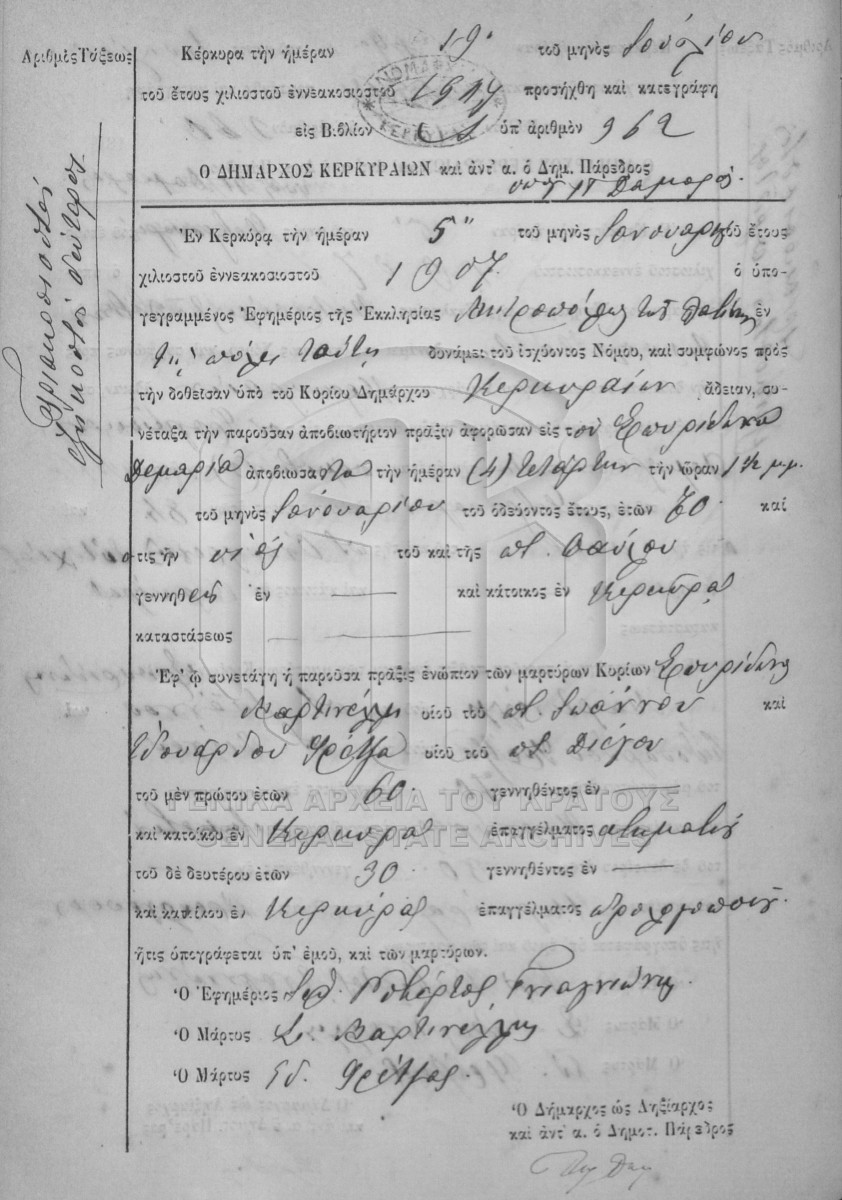 Ἀριθμὸς Τάξεως
Τριακοσιοστός
ἑξηκοστός δεύτερος
Κέρκυρα τὴν ἡμέραν 19 τοῦ μηνὸς Ἰουλίου
τοῦ ἔτους χιλιοστοῦ ἐννεακοσιοστοῦ 1917 προσήχθη καὶ κατεγράφη
εἰς Βιβλίον ὑπ' ἀριθμὸν 362
Ὁ ΔΗΜΑΡΧΟΣ ΚΕΡΚΥΡΑΙΩΝ καὶ ἀντ' α. ὁ Δημ. Πάρεδρος
Ἐν Κερκύρᾳ τὴν ἡμέραν 5 τοῦ μηνὸς Ἰανουαρίου τοῦ ἔτους
χιλιοστοῦ ἐννεακοσιοστοῦ 1907 ὁ ὑπο-
γεγραμμένος Ἐφημέριος τῆς Ἐκκλησίας Μητροπόλεως τῶν Λατίνων ἐν
τῇ πόλει ταύτῃ δυνάμει τοῦ ἰσχύοντος Νόμου, καὶ συμφώνος πρὸς
τὴν δοθεῖσαν ὑπὸ τοῦ Κυρίου Δημάρχου Κερκυραίων ἄδειαν, συ-
νέταξα τὴν παροῦσαν ἀποβιωτήριον πρᾶξιν ἀφορῶσαν εἰς τὸν Σπυρίδωνα
Δεμαρία ἀποβιώσαντα τὴν ἡμέραν (4) τετάρτην τὴν ὥραν 1 ½ μ.μ.
τοῦ μηνὸς Ἰανουαρίου τοῦ ὁδεύοντος ἔτους, ἐτῶν 70 καὶ
ὅτις ἦν υἱός τοῦ καὶ τῆς ποτ. Παύλου
γεννηθείς ἐν — καὶ κάτοικος ἐν Κερκύρᾳ
καταστάσεως —
Ἐφ' ᾧ συνετάγη ἡ παροῦσα πρᾶξις ἐνώπιον τῶν μαρτύρων Κυρίων Σπυρίδωνος
Μαρτινέλλη υἱοῦ τοῦ ποτ. Ἰωάννου καὶ
Ἐδουάρδου Φρέτζα υἱοῦ τοῦ ποτ. Διέγου
τοῦ μὲν πρώτου ἐτῶν 60 γεννηθέντος ἐν —
καὶ κατοίκου ἐν Κερκύρᾳ ἐπαγγέλματος κτηματίου
τοῦ δὲ δευτέρου ἐτῶν 30 γεννηθέντος ἐν —
καὶ κατοίκου ἐν Κερκύρᾳ ἐπαγγέλματος ὡρολογοποιοῦ
ἥτις ὑπογράφεται ὑπ' ἐμοῦ, καὶ τῶν μαρτύρων.
Ὁ Ἐφημέριος Ροβέρτος
Ὁ Μάρτος Σ. Μαρτινέλλης
Ὁ Μάρτος Ἐδ. Φρέτζας
Ὁ Δήμαρχος ὡς Ληξίαρχος
καὶ ἀντ' α. ὁ Δημοτ. Πάρεδρος
ΓΕΝΙΚΑ ΑΡΧΕΙΑ ΤΟΥ ΚΡΑΤΟΥΣ
GENERAL STATE ARCHIVES